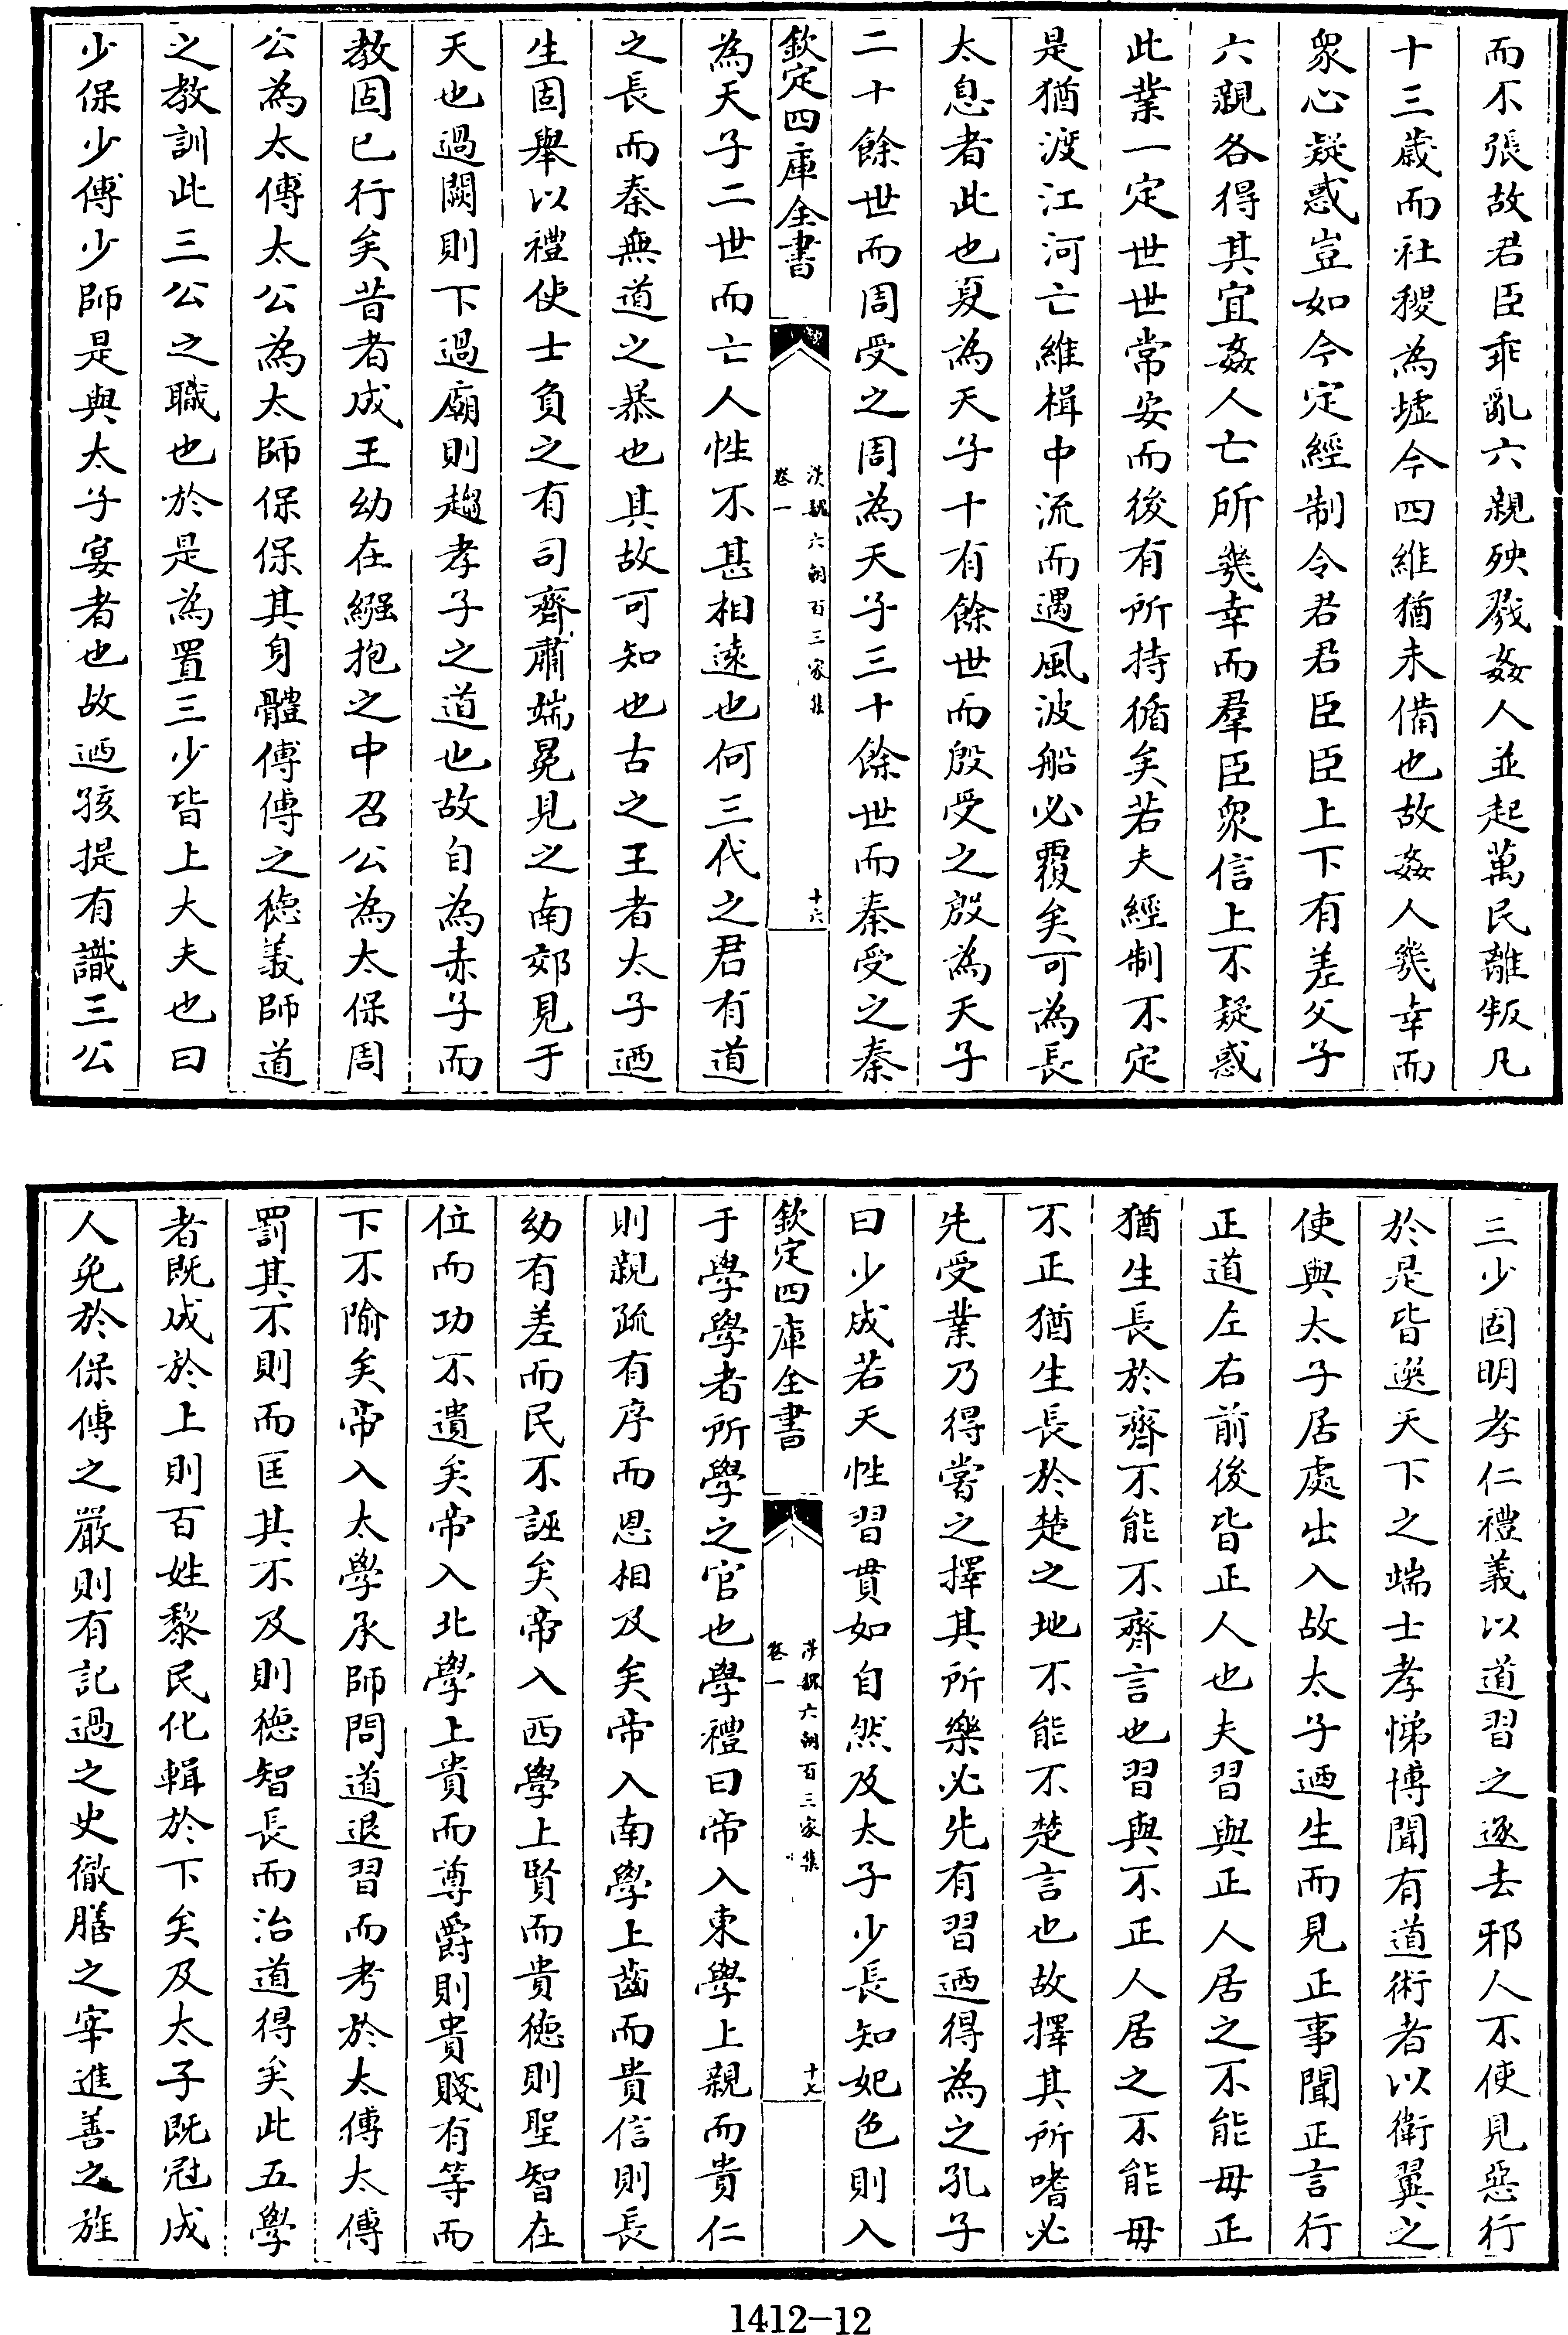 而不張故君臣乖亂六親殃戮姦人並起萬民離叛凡
十三歲而社稷為墟今四維猶未備也故姦人幾幸而
衆心疑惑豈如今定經制令君君臣臣上下有差父子
六親各得其宜姦人亡所幾幸而羣臣衆信上不疑惑
此業一定世世常安而後有所持循矣若夫經制不定
是猶渡江河亡維楫中流而遇風波船必覆矣可為長
太息者此也夏為天子十有餘世而殷受之殷為天子
二十餘世而周受之周為天子三十餘世而秦受之秦
欽定四庫全書
漢魏六朝百三家集
卷一
十六
為天子二世而亡人性不甚相遠也何三代之君有道
之長而秦無道之暴也其故可知也古之王者太子迺
生固舉以禮使士負之有司齊肅端冕見之南郊見于
天也過闕則下過廟則趨孝子之道也故自為赤子而
教固已行矣昔者成王幼在繈抱之中召公為太保周
公為太傅太公為太師保保其身體傅傅之德義師道
之教訓此三公之職也於是為置三少皆上大夫也曰
少保少傅少師是與太子宴者也故迺孩提有識三公
三少固明孝仁禮義以道習之逐去邪人不使見惡行
於是皆選天下之端士孝悌博聞有道術者以衛翼之
使與太子居處出入故太子迺生而見正事聞正言行
正道左右前後皆正人也夫習與正人居之不能毋正
猶生長於齊不能不齊言也習與不正人居之不能毋
不正猶生長於楚之地不能不楚言也故擇其所嗜必
先受業乃得嘗之擇其所樂必先有習迺得為之孔子
曰少成若天性習貫如自然及太子少長知妃色則入
欽定四庫全書
漢魏六朝百三家集
卷一
十七
于學學者所學之官也學禮曰帝入東學上親而貴仁
則親疏有序而恩相及矣帝入南學上齒而貴信則長
幼有差而民不誣矣帝入西學上賢而貴德則聖智在
位而功不遺矣帝入北學上貴而尊爵則貴賤有等而
下不隃矣帝入太學承師問道退習而考於太傅太傅
罰其不則而匡其不及則德智長而治道得矣此五學
者既成於上則百姓黎民化輯於下矣及太子既冠成
人免於保傅之嚴則有記過之史徹膳之宰進善之旌
1412-12